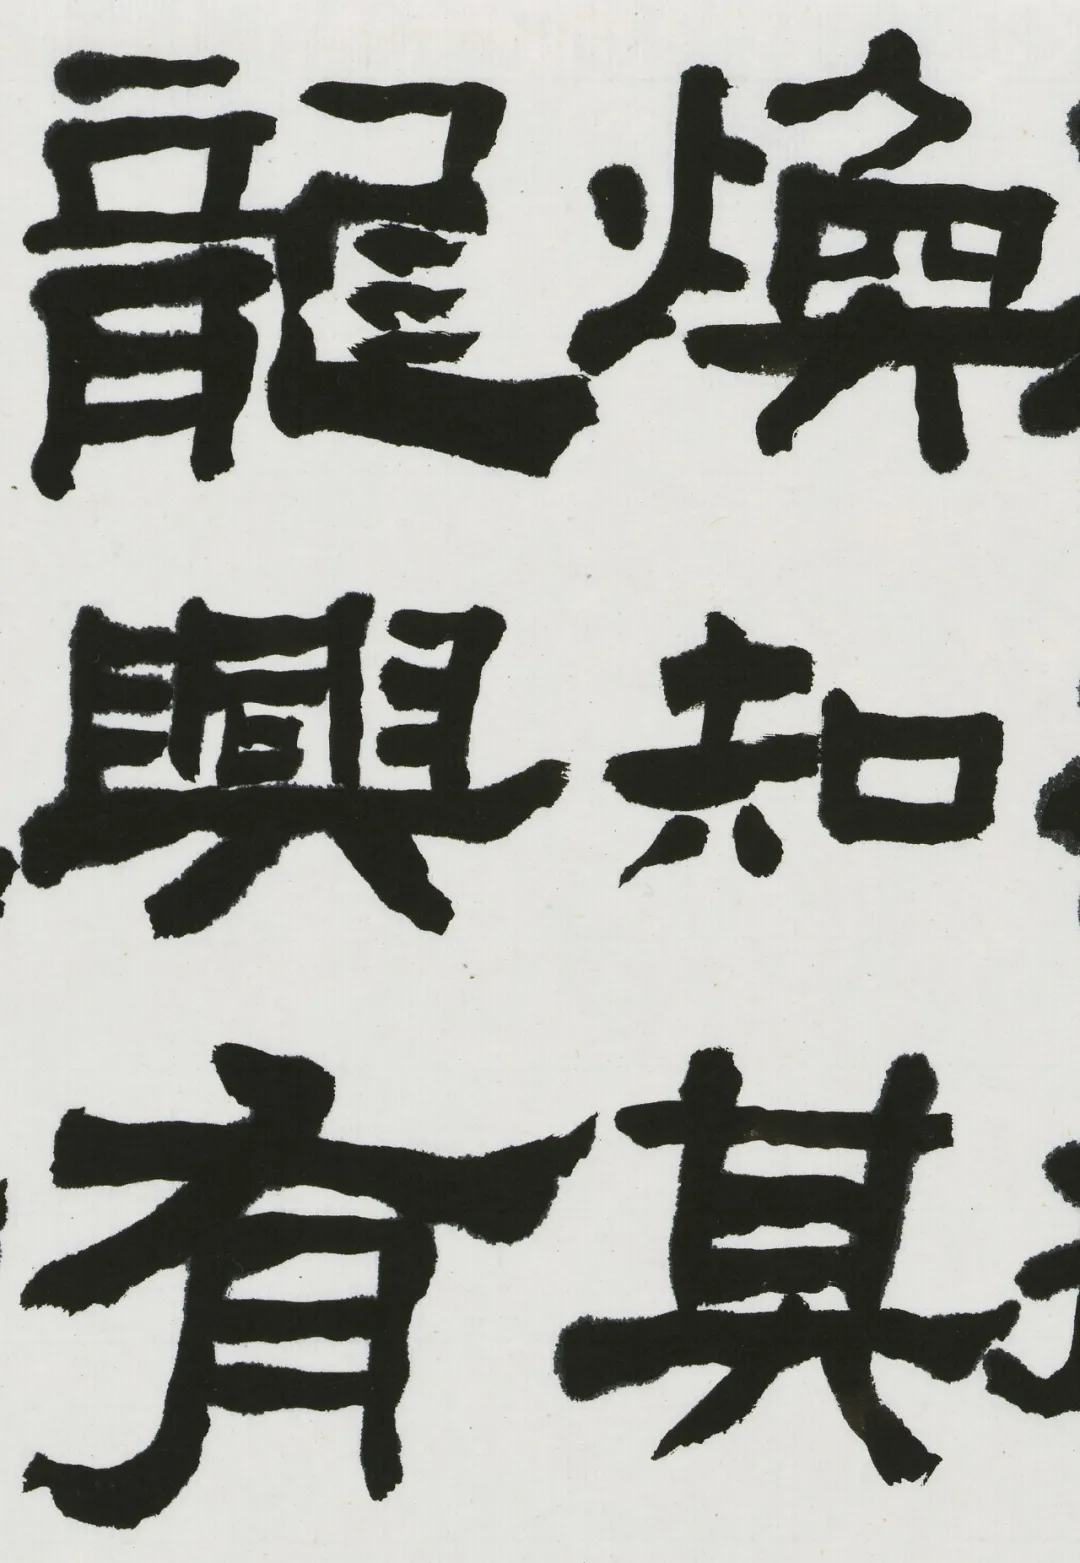 煥知其
龍興有